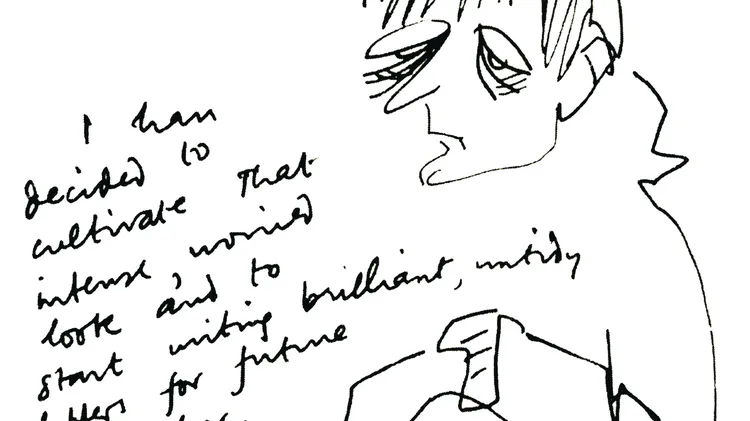 I have
decided to
cultivate that
intense, worried
look and to
start writing brilliant, untidy
letters for future